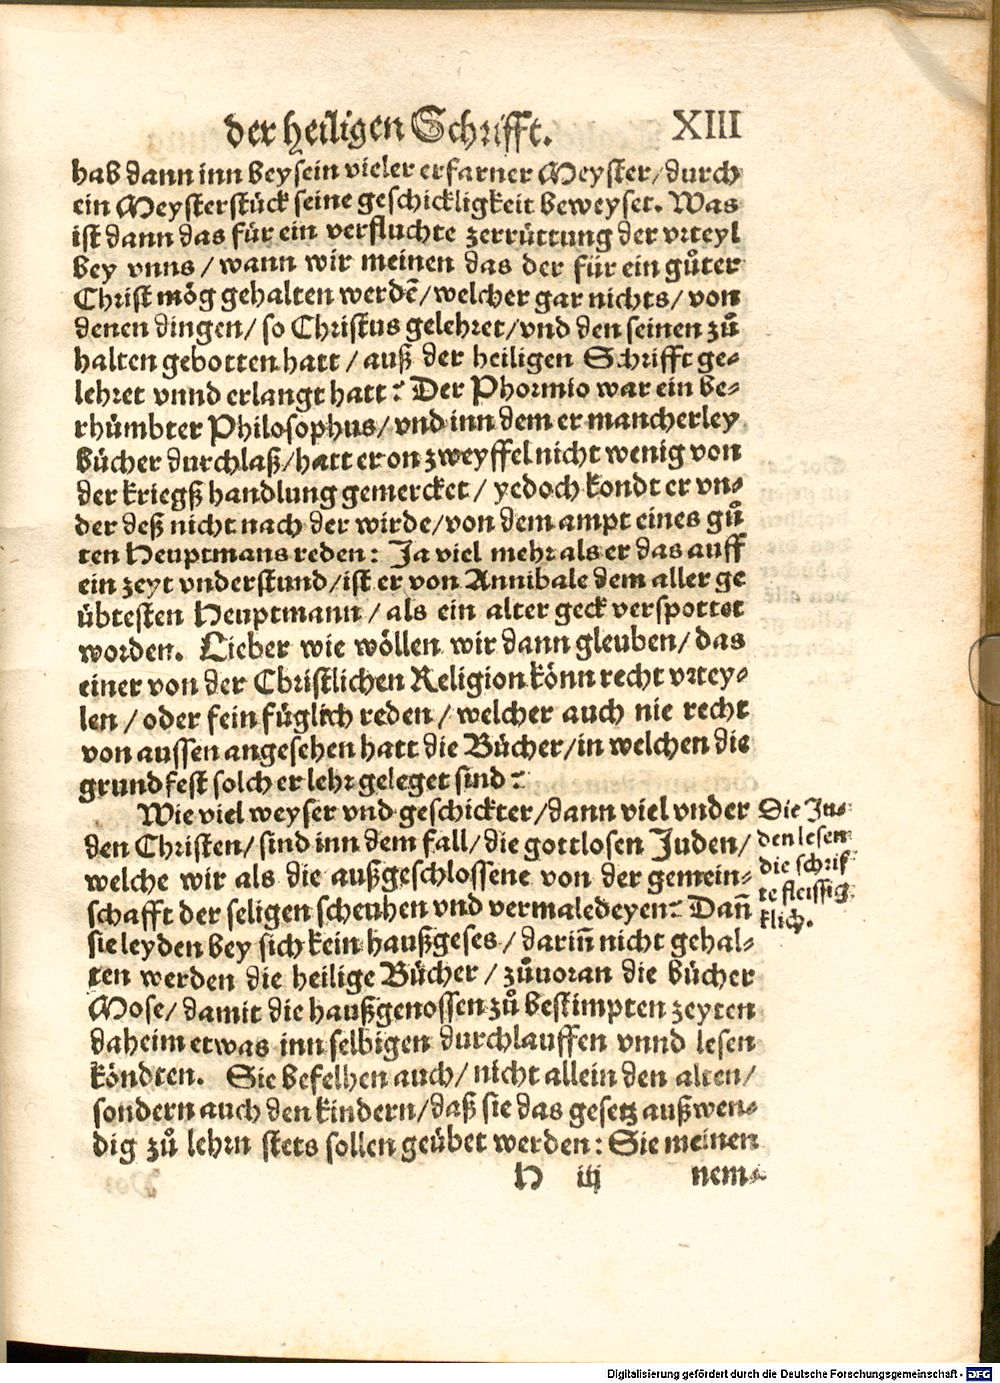 der heiligen Schrifft. XIII
hab dann inn beysein vieler erfarner Meyster/durch
ein Meysterstück seine geschickligkeit beweyset. Was
ist dann das für ein verfluchte zerrüttung der vrteyl
bey vnns / wann wir meinen das der für ein gůter
Christ mög gehalten werdē/welcher gar nichts/ von
denen dingen/ so Christus gelehret/vnd den seinen zů
halten gebotten hatt / auß der heiligen Schrifft ge-
lehret vnnd erlangt hatt? Der Phormio war ein be-
rhümbter Philosophus/ vnd inn dem er mancherley
bücher durchlaß/hatt er on zweyffel nicht wenig von
der kriegß handlung gemercket / yedoch kondt er vn-
der deß nicht nach der wirde/von dem ampt eines gů
ten Heuptmans reden: Ja viel mehr als er das auff
ein zeyt vnderstund/ist er von Annibale dem aller ge
übtesten Heuptmann / als ein alter geck verspottet
worden. Lieber wie wöllen wir dann gleuben/ das
einer von der Christlichen Religion könn recht vrtey-
len / oder fein füglich reden / welcher auch nie recht
von aussen angesehen hatt die Bücher/in welchen die
grundfest solcher lehr geleget sind?
Wie viel weyser vnd geschickter/dann viel vnder
den Christen/ sind inn dem fall/ die gottlosen Juden/
welche wir als die außgeschlossene von der gemein-
schafft der seligen scheuhen vnd vermaledeyen? Dañ
sie leyden bey sich kein haußgeses / dariñ nicht gehal-
ten werden die heilige Bücher / zůuoran die bücher
Mose/ damit die haußgenossen zů bestimpten zeyten
daheim etwas inn selbigen durchlauffen vnnd lesen
köndten. Sie befelhen auch/ nicht allein den alten/
sondern auch den kindern/daß sie das gesetz außwen-
dig zů lehrn stets sollen geübet werden: Sie meinen
Die Ju-
den lesen
die schrif
te fleissig
klich.
H iij nem-
Digitalisierung gefördert durch die Deutsche Forschungsgemeinschaft - DFG